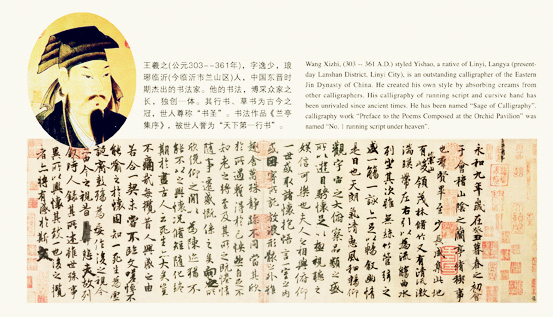 王羲之(公元303--361年)，字逸少，琅
琊临沂(今临沂市兰山区)人，中国东晋时
期杰出的书法家。他的书法，博采众家之
长，独创一体。其行书、草书为古今之
冠，世人尊称“书圣”。书法作品《兰亭
集序》，被世人誉为“天下第一行书”。
Wang Xizhi, (303 -- 361 A.D.) styled Yishao, a native of Linyi, Langya (present-
day Lanshan District, Linyi City), is an outstanding calligrapher of the Eastern
Jin Dynasty of China. He created his own style by absorbing creams from
other calligraphers. His calligraphy of running script and cursive hand has
been unrivaled since ancient times. He has been named “Sage of Calligraphy”.
calligraphy work “Preface to the Poems Composed at the Orchid Pavilion” was
named “No. 1 running script under heaven”.
永和九年歲在癸丑暮春之初會
于會稽山陰之蘭亭脩稧事
也羣賢畢至少長咸集此地
有崇山峻領茂林脩竹又有清流激
湍暎帶左右引以為流觴曲水
列坐其次雖無絲竹管弦之
盛一觴一詠亦足以暢敘幽情
是日也天朗氣清惠風和暢仰
觀宇宙之大俯察品類之盛
所以遊目騁懷足以極視聽之
娛信可樂也夫人之相與俯仰
一世或取諸懷抱悟言一室之內
或因寄所託放浪形骸之外雖
趣舍萬殊靜躁不同當其欣
於所遇蹔得於己怏然自足不
知老之將至及其所之既惓情
隨事遷感慨係之矣向之所
欣俛仰之閒以為陳迹猶不
能不以之興懷況脩短隨化終
期於盡古人云死生亦大矣豈
不痛哉每攬昔人興感之由
若合一契未嘗不臨文嗟悼不
能喻之於懷固知一死生為虛
誕齊彭殤為妄作後之視今
亦由今之視昔悲夫故列
敘時人錄其所述雖世殊事
異所以興懷其致一也後之攬
者亦將有感於斯文